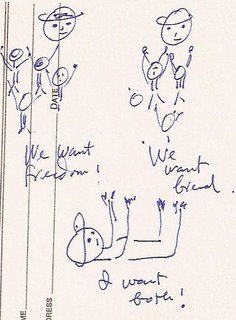 We want
freedom!
We
want
bread.
I want
both!
DATE
ME
DRESS